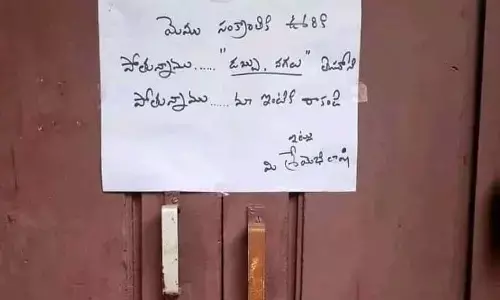 మెము సంక్రాంతికి ఊరికి
పోతున్నాము...... "డబ్బు, నగలు" తీసుకొని
పోతున్నాము...... మా ఇంటికి రాకండి
ఇట్లు
మి శ్రేమోభిలాషి